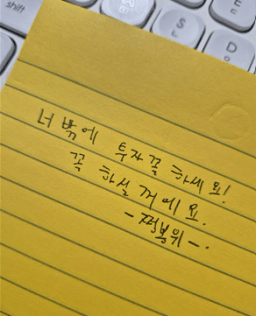 shift
S
D
E
너 밖에 투자꼴 하세요!
꼭 하실 거에요.
-쩐봉위-.